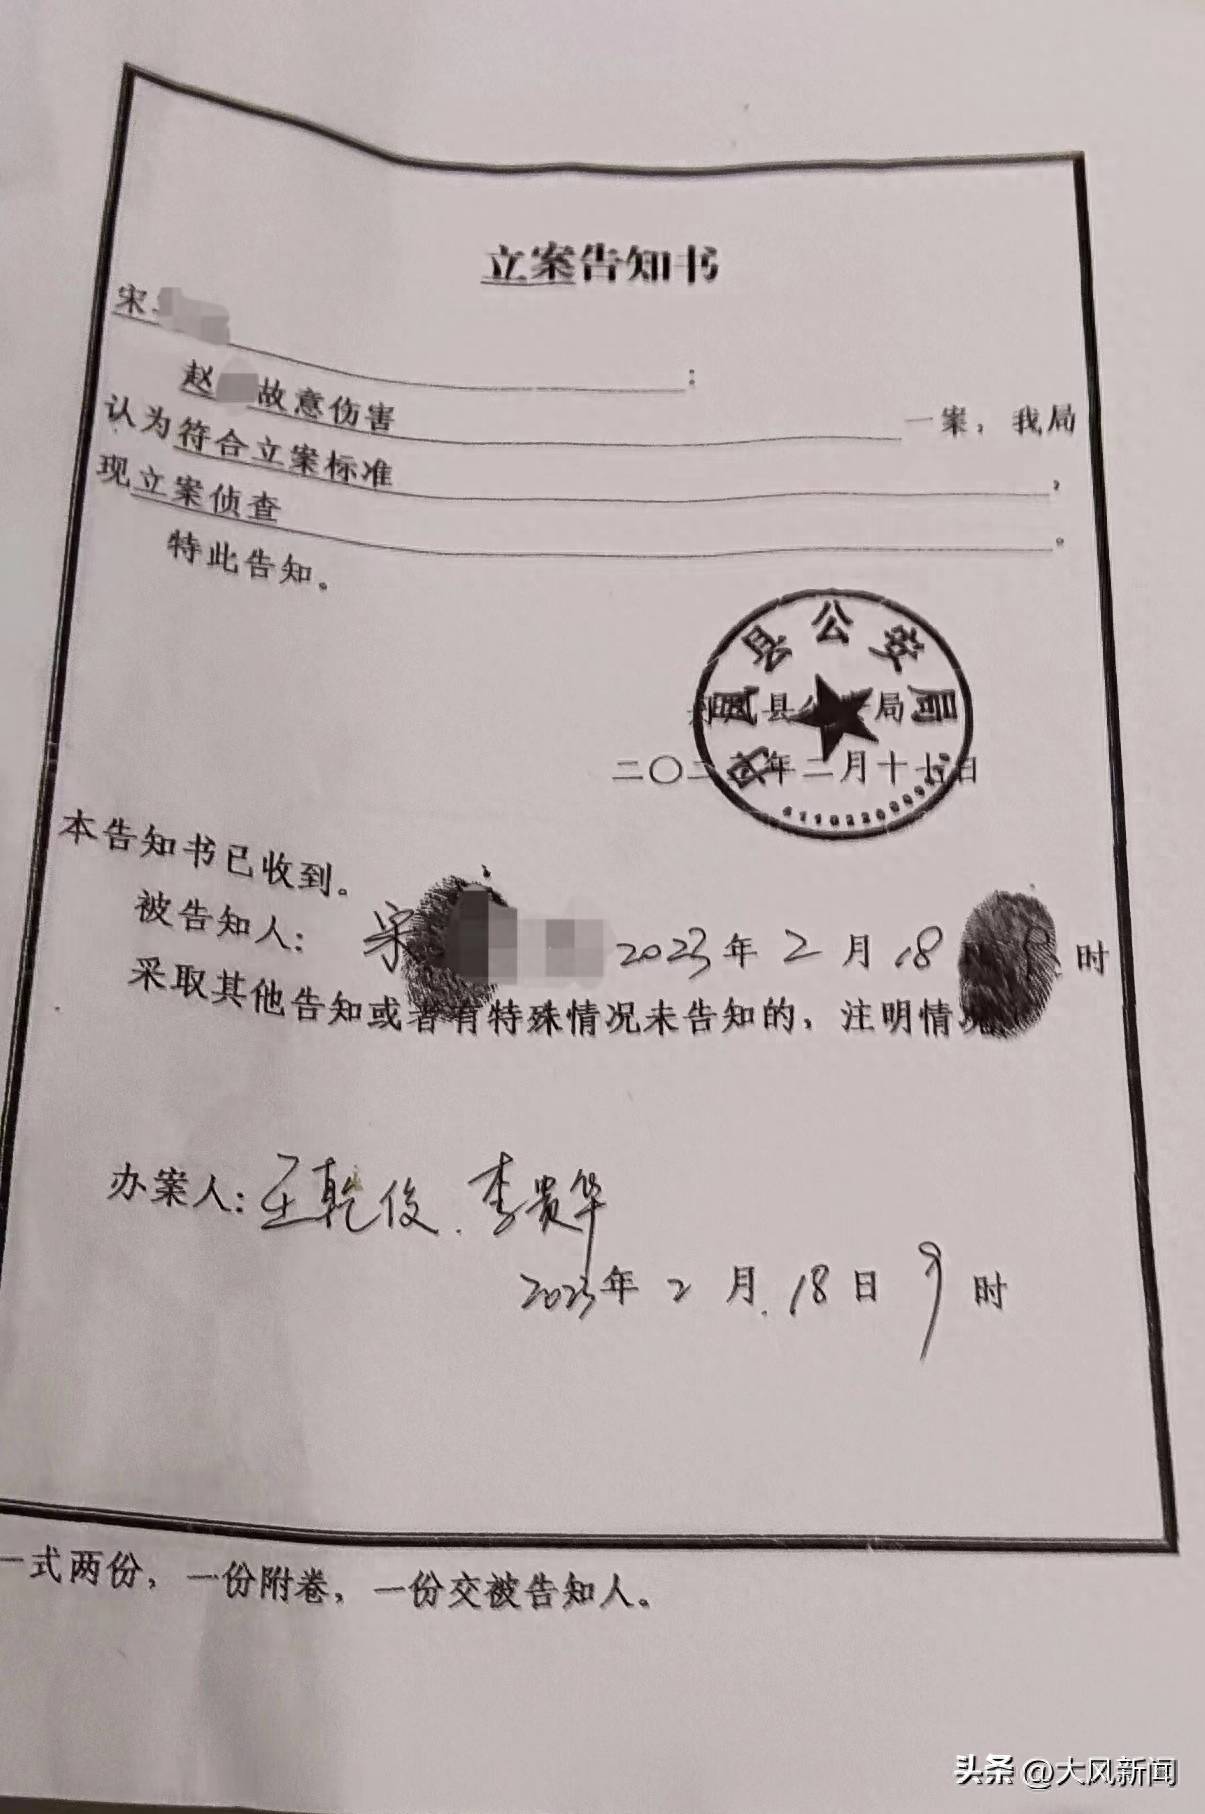 立案告知书
宋
：
赵 故意伤害 一案，我局
认为符合立案标准，
现立案侦查。
特此告知。
县公安局
县 局
年二月十七日
本告知书已收到。
被告知人：宋 2023年2月18 9时
采取其他告知或者有特殊情况未告知的，注明情况
办案人：王乾俊.李贵华
2023年2月.18日9时
一式两份，一份附卷，一份交被告知人。
头条 @大风新闻